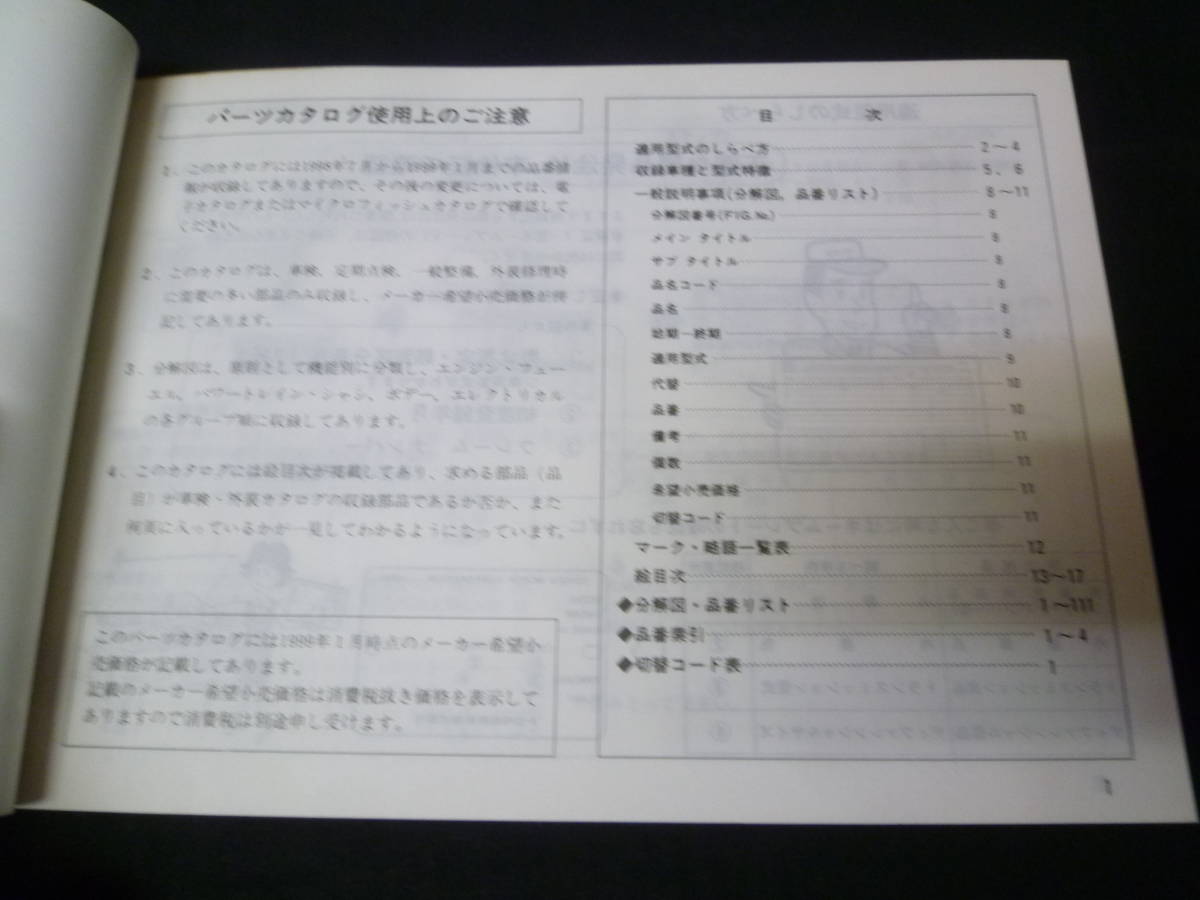 パーツカタログ使用上のご注意
1. このカタログには1988年7月から1998年1月までの品番情
報が収録してありますので、その後の変更については、電
子カタログまたはマイクロフィッシュカタログで確認して
ください。
2. このカタログは、車検、定期点検、一般整備、外装修理時
に需要の多い部品のみ収録し、メーカー希望小売価格が併
記してあります。
3. 分解図は、原則として機能別に分類し、エンジン・フュー
エル、パワートレイン・シャシ、ボデー、エレクトリカル
の各グループ順に収録してあります。
4. このカタログには絵目次が掲載してあり、求める部品(品
目)が車検・外装カタログの収録部品であるか否か、また
何頁に入っているかが一見してわかるようになっています。
このパーツカタログには1998年1月時点のメーカー希望小
売価格が記載してあります。
記載のメーカー希望小売価格は消費税抜き価格を表示して
ありますので消費税は別途申し受けます。
目 次
適用型式のしらべ方 2〜4
収録車種と型式特徴 5, 6
一般説明事項(分解図, 品番リスト) 8〜11
分解図番号(FIG.No.) 8
メイン タイトル 8
サブ タイトル 8
品名コード 8
品名 8
始期−終期 8
適用型式 9
代替 10
品番 10
備考 11
個数 11
希望小売価格 11
切替コード 11
マーク・略語一覧表 12
絵目次 13〜17
◆分解図・品番リスト 1〜111
◆品番索引 1〜4
◆切替コード表 1
1